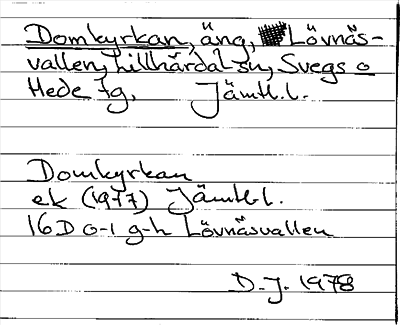 Domkyrkan, äng, Lövnäs-
vallen, Lillhärdal sn, Svegs o
Hede tg, Jämtl.l.
Domkyrkan
ek (1977) Jämtl.l.
16D 0-1 g-h Lövnäsvallen
D.J. 1978